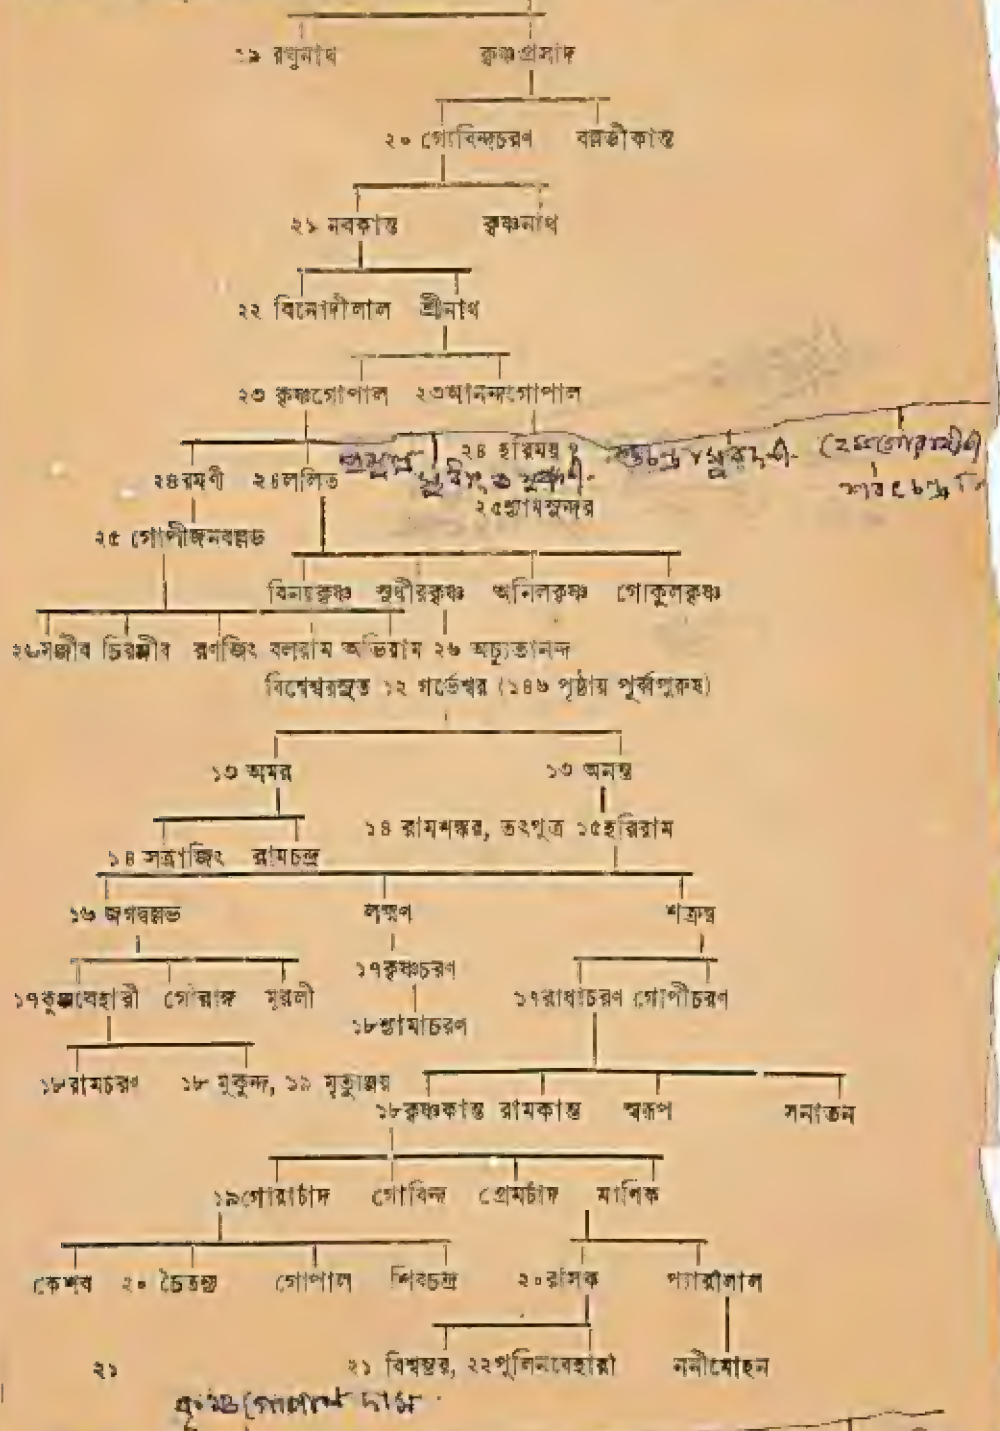 ১৯ রঘুনাথ কৃষ্ণপ্রসাদ
২০ গোবিন্দচরণ বল্লভীকান্ত
২১ নবকান্ত কৃষ্ণনাথ
২২ বিনোদীলাল শ্রীনাথ
২৩ কৃষ্ণগোপাল ২৩আনন্দগোপাল
২৪ হরিময়
২৪রমণী ২৪ললিত
২৫শ্যামসুন্দর
২৫ গোপীজনবল্লভ
বিনয়কৃষ্ণ সুধীরকৃষ্ণ অনিলকৃষ্ণ গোকুলকৃষ্ণ
২৬সঞ্জীব চিরঞ্জীব রণজিৎ বলরাম অভিরাম ২৬ অচ্যুতানন্দ
বিশ্বেশ্বরসুত ১২ গর্ভেশ্বর (১৪৬ পৃষ্ঠায় পূর্ব্বপুরুষ)
১৩ অমর ১৩ অনন্ত
১৪ রামশঙ্কর, তৎপুত্র ১৫হরিরাম
১৪ সত্রাজিৎ রামচন্দ্র
১৬ জগবল্লভ লক্ষ্মণ শত্রুঘ্ন
১৭কৃষ্ণচরণ
১৭কুঞ্জবেহারী গৌরাঙ্গ মুরলী ১৭রাধাচরণ গোপীচরণ
১৮শ্যামাচরণ
১৮রামচরণ ১৮ মুকুন্দ, ১৯ মৃত্যুঞ্জয়
১৮কৃষ্ণকান্ত রামকান্ত স্বরূপ সনাতন
১৯গোরাচাঁদ গোবিন্দ প্রেমচাঁদ মাণিক
কেশব ২০ চৈতন্য গোপাল শিবচন্দ্র ২০রসিক প্যারীলাল
২১ ২১ বিশ্বম্ভর, ২২পুলিনবেহারী ননীমোহন